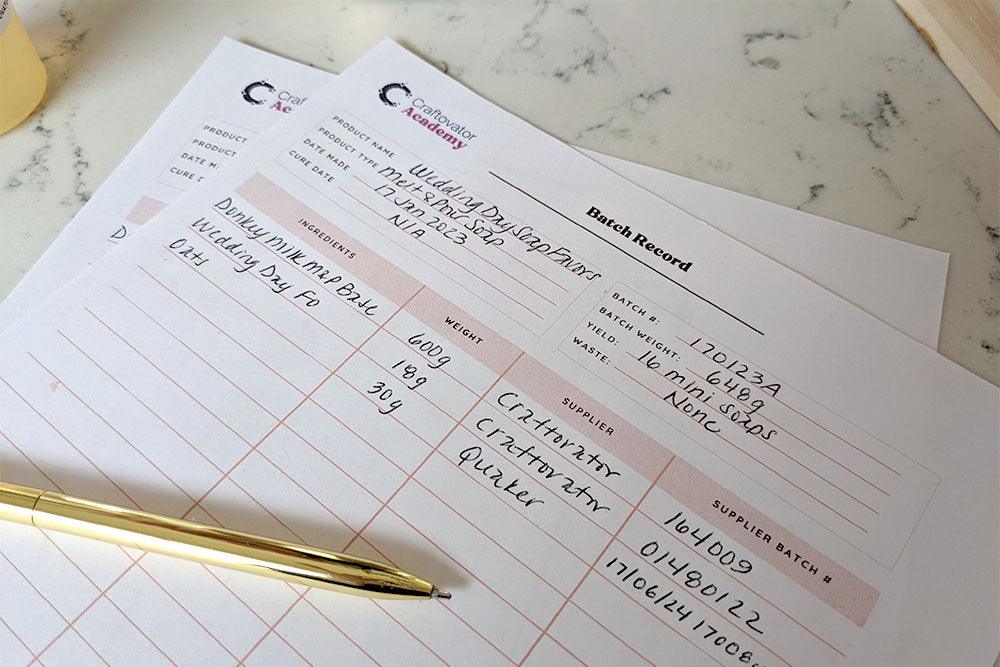 Craf
Ac
PRODUCT
PRODUCT
DATE M
CURE D
D
Craftovator
Academy
Batch Record
PRODUCT NAME Wedding Day Soap Favors
PRODUCT TYPE Melt & Pour Soap
DATE MADE 17 Jan 2023
CURE DATE N/A
BATCH #: 170123A
BATCH WEIGHT: 648g
YIELD: 16 mini soaps
WASTE: None
INGREDIENTS WEIGHT SUPPLIER SUPPLIER BATCH #
Donkey Milk M&P Base 600g Craftovator 164009
Wedding Day FO 18g Craftovator 01480122
Oats 30g Quaker 17/06/24 17008